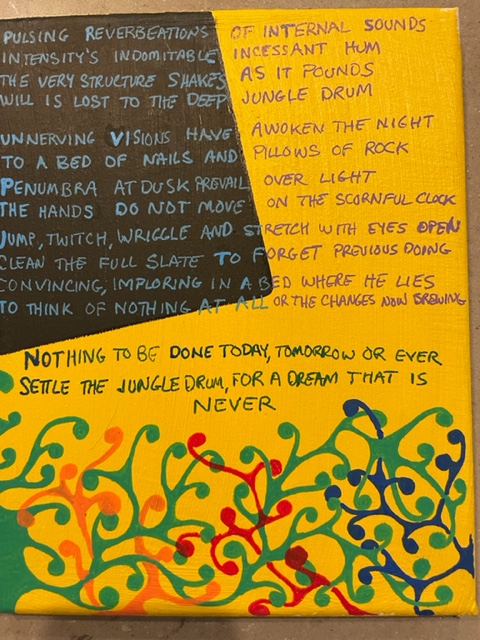 PULSING REVERBEATIONS OF INTERNAL SOUNDS
INTENSITY'S INDOMITABLE INCESSANT HUM
THE VERY STRUCTURE SHAKES AS IT POUNDS
WILL IS LOST TO THE DEEP JUNGLE DRUM
UNNERVING VISIONS HAVE AWOKEN THE NIGHT
TO A BED OF NAILS AND PILLOWS OF ROCK
PENUMBRA AT DUSK PREVAIL OVER LIGHT
THE HANDS DO NOT MOVE ON THE SCORNFUL CLOCK
JUMP, TWITCH, WRIGGLE AND STRETCH WITH EYES OPEN
CLEAN THE FULL SLATE TO FORGET PREVIOUS DOING
CONVINCING, IMPLORING IN A BED WHERE HE LIES
TO THINK OF NOTHING AT ALL OR THE CHANGES NOW BREWING
NOTHING TO BE DONE TODAY, TOMORROW OR EVER
SETTLE THE JUNGLE DRUM, FOR A DREAM THAT IS
NEVER